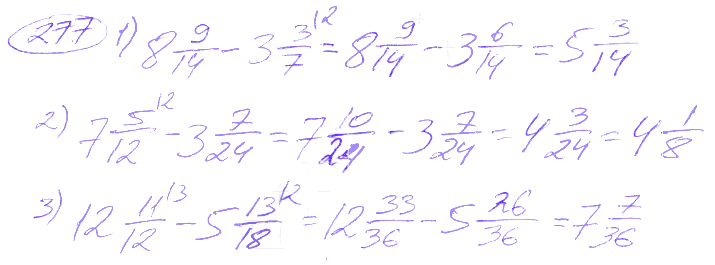 277 1) 8 9/14 - 3 3/7 ^{\2} = 8 9/14 - 3 6/14 = 5 3/14
2) 7 5/12 ^{\2} - 3 7/24 = 7 10/24 - 3 7/24 = 4 3/24 = 4 1/8
3) 12 11/12 ^{\3} - 5 13/18 ^{\2} = 12 33/36 - 5 26/36 = 7 7/36